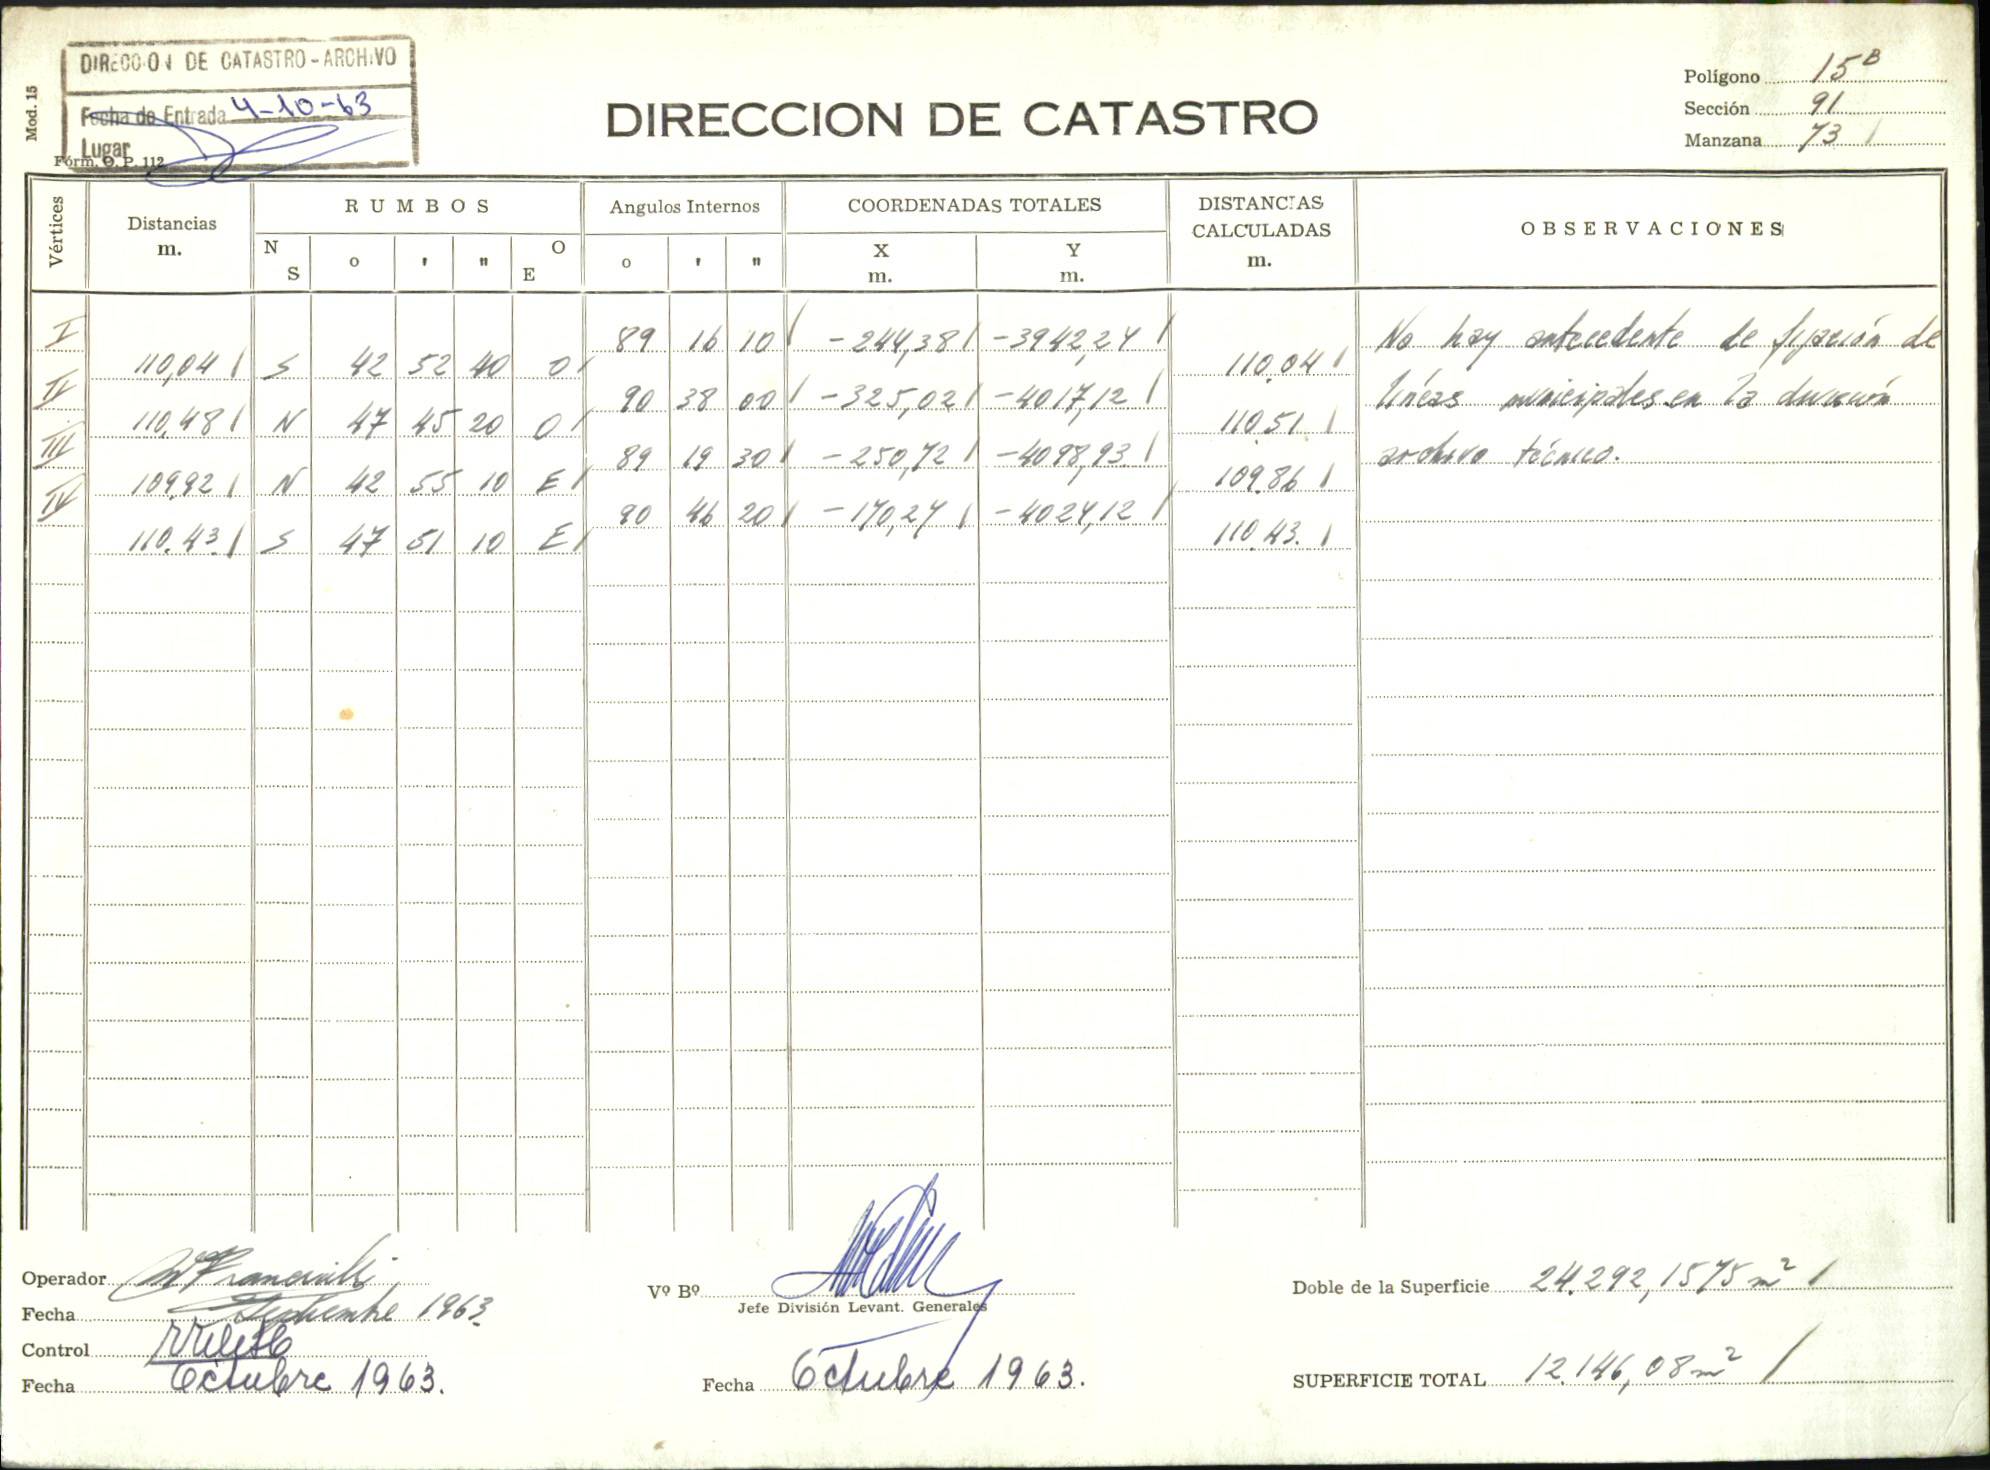 DIRECCION DE CATASTRO - ARCHIVO
Fecha de Entrada 4-10-63
Lugar
Mod. 15
Fórm. O. P. 112
DIRECCION DE CATASTRO
Polígono 15 B
Sección 91
Manzana 73
Vértices
Distancias m.
RUMBOS
N S o ' " O E
Angulos Internos
o ' "
COORDENADAS TOTALES
X m. Y m.
DISTANCIAS CALCULADAS m.
OBSERVACIONES
I 89 16 10 -244,38 -3942,24 No hay antecedente de fijación de
110,04 S 42 52 40 O 110,04
II 90 38 00 -325,02 -4017,12 líneas municipales en la dirección
110,48 N 47 45 20 O 110,51
III 89 19 30 -250,72 -4098,93 archivo técnico.
109,92 N 42 55 10 E 109,86
IV 90 46 20 -170,24 -4024,12
110,43 S 47 51 10 E 110,43
Operador
Fecha Septiembre 1963
Control
Fecha Octubre 1963.
Vº Bº
Jefe División Levant. Generales
Fecha Octubre 1963.
Doble de la Superficie 24.292,1575 m²
SUPERFICIE TOTAL 12.146,08 m²